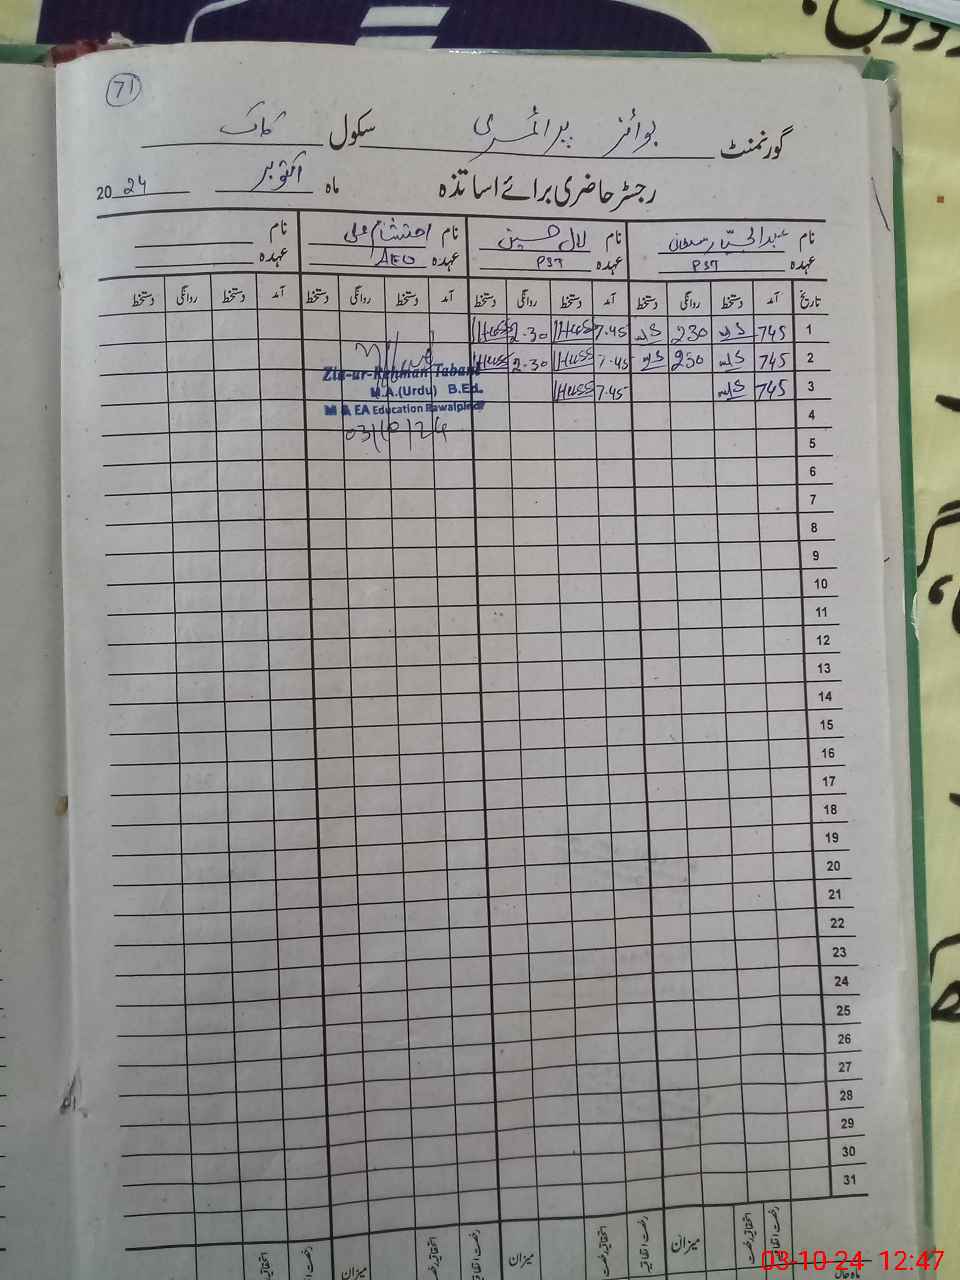 71
گورنمنٹ بوائز پرائمری سکول کاک
رجسٹر حاضری برائے اساتذہ ماہ اکتوبر 2024
نام عبدالجبار سلطانی نام لال حسین نام احتشام علی نام
عہدہ PST عہدہ PST عہدہ AEO عہدہ
تاریخ آمد دستخط روانگی دستخط آمد دستخط روانگی دستخط آمد دستخط روانگی دستخط آمد دستخط روانگی دستخط
1 745 230 7.45 Huss 2.30 Huss
2 745 230 7.45 Huss 2.30 Huss
3 745 7.45 Huss
Zia-ur-Rehman Tabani
M.A.(Urdu) B.Ed.
M & EA Education Rawalpindi
03/10/24
4
5
6
7
8
9
10
11
12
13
14
15
16
17
18
19
20
21
22
23
24
25
26
27
28
29
30
31
رخصت اتفاقیہ استحقاقیہ رخصت میزان رخصت اتفاقیہ استحقاقیہ رخصت میزان
03-10-24 12:47